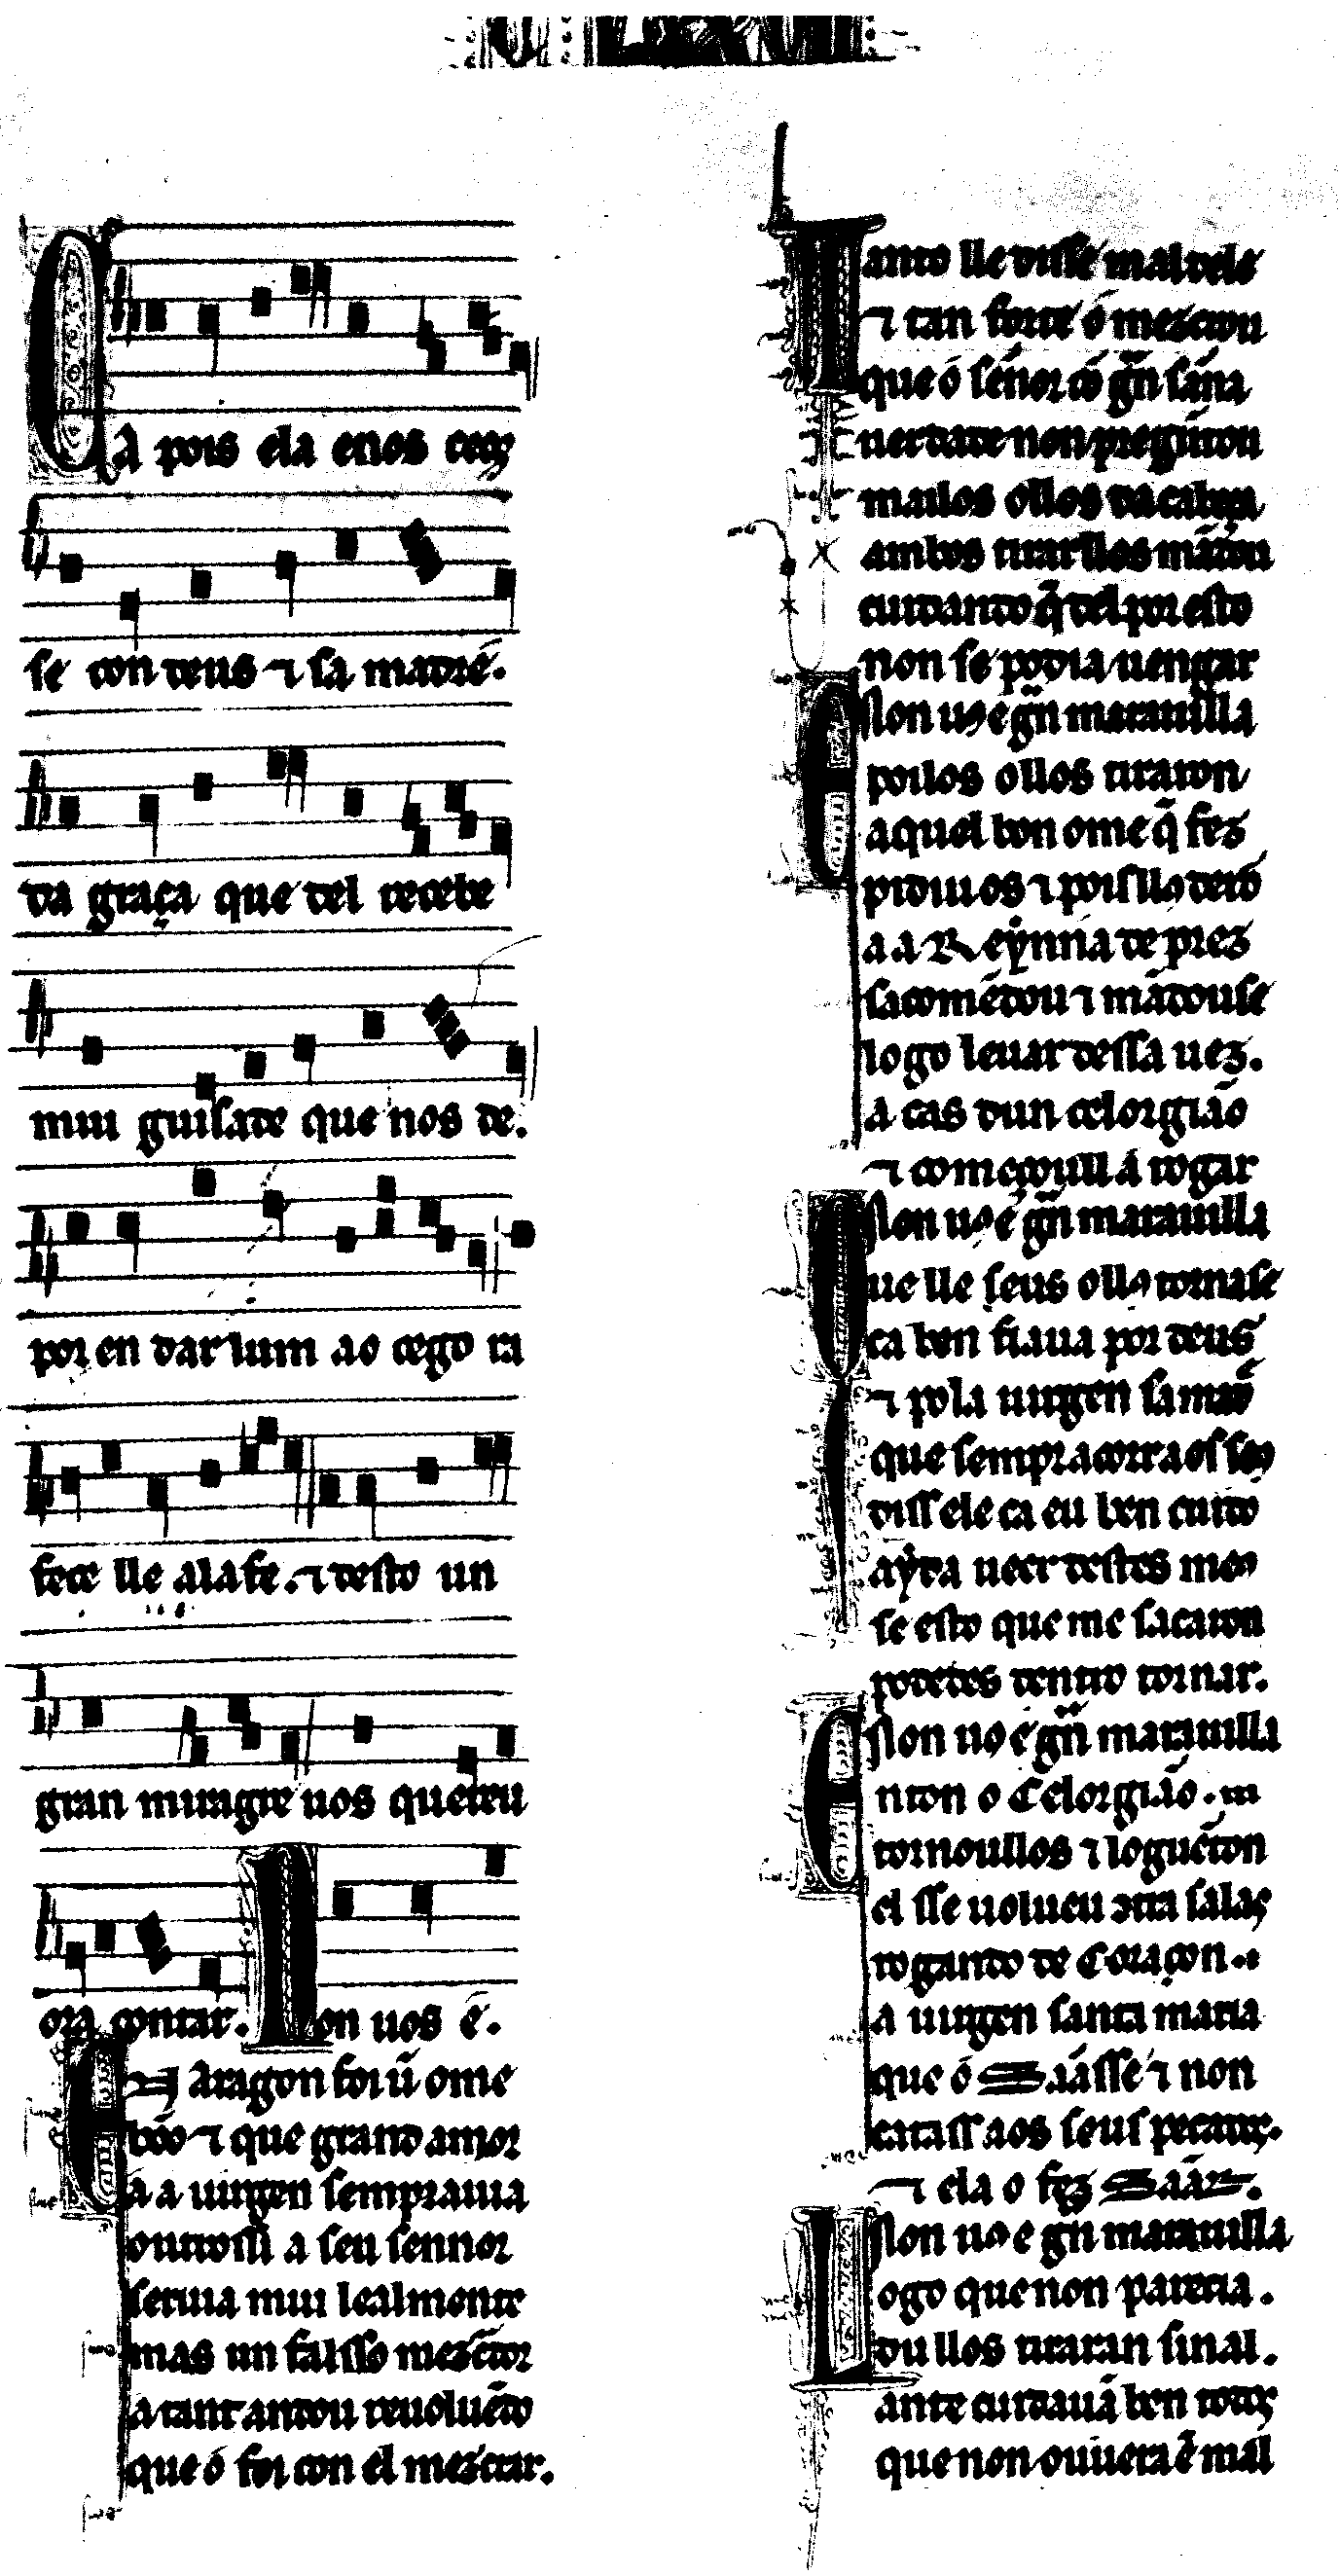 CA pois ela enos ceos
se con deus ⁊ sa madre.
da graça que del recebe
mui guisade que nos de.
por en dar lum ao cego ra
fece lle alafe. ⁊ desto un
gran miragre uos quereu
ora contar. Non uos é.
EN aragon foi ũ ome
bõo ⁊ que grand amor
á a uirgen sempr auia
outrossi a seu sennor
seruia mui lealmente
mas un falsso mezcrador
a tant andou reuoluẽdo
que ó foi con el mezcrar.
Tanto lle disse mal dele
⁊ tan forte ó mezcrou
que ó sennor cõ gñ sanna
uerdade non pregũtou
mailos ollos da cabeça
ambos tirar llos mãdou
cuidando q̃ del por esto
non se podia uengar
Non uos e gñ marauilla
Poilos ollos tiraron
aquel bon ome q̃ fez
pidiu os ⁊ pois llos derõ
a a Reynna de prez
sacomẽdou ⁊ mãdouse
logo leuar dessa uez.
a cas dun celorgião
⁊ começoull á rogar
Non uos e gñ marauilla
Que lle seus ollos tornase
ca ben fiaua por deus
⁊ pola uirgen sa madre
que sempr acorra os seus
diss ele ca eu ben cuido
ayda ueer destes meos
se esto que me sacaron
podedes dentro tornar.
Non uos e gñ marauilla
Enton o Celorgião.
tornoullos ⁊ loguẽton
el sse uolueu ↄtra salas
rogando de Coraçon
a uirgen santa maria
que ó Sãasse ⁊ non
catass aos seus pecados.
⁊ ela o fez Sãar.
Non uos e gñ marauilla
Logo que non parecia.
du llos tiraran sinal.
ante cuidauã ben todos
que non ouuera ẽ mal